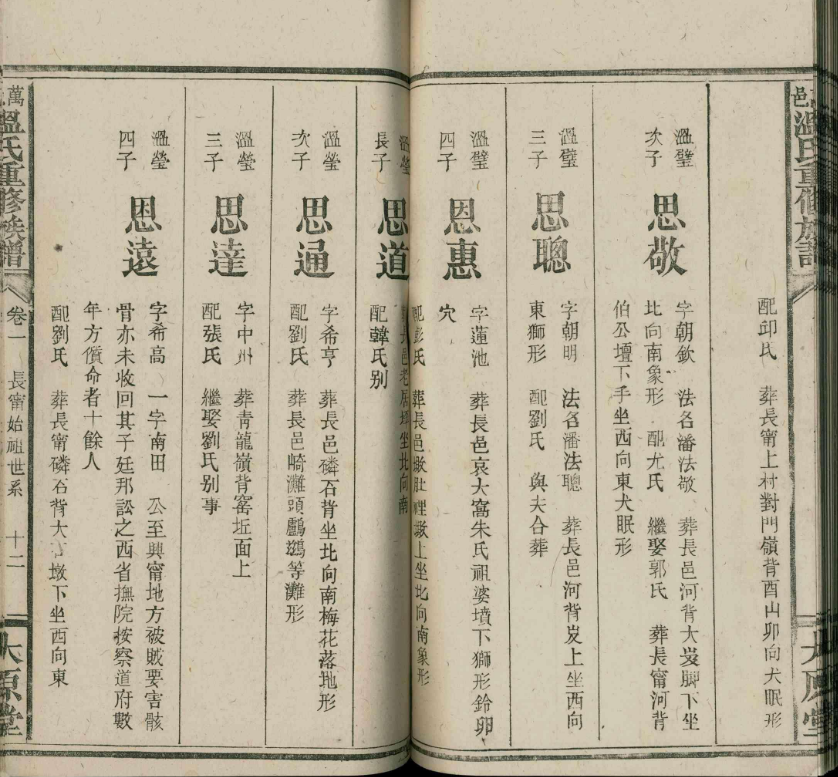 邑溫氏重修族譜
太原堂
配邱氏　葬長甯上村對門嶺背酉山卯向犬眠形
溫璧次子
思敬
字朝欽　法名潘法敬　葬長邑河背大岌脚下坐
比向南象形　配尤氏　繼娶郭氏　葬長甯河背
伯公壇下手坐西向東犬眠形
溫璧三子
思聰
字朝明　法名潘法聰　葬長邑河背岌上坐西向
東獅形　配劉氏　與夫合葬
溫璧四子
恩惠
字蓮池　葬長邑哀大窩朱氏祖婆墳下獅形鈴卵
穴
配彭氏　葬長邑墩肚裡墩上坐北向南象形
溫瑩長子
思道
坐北向南
配韓氏别
溫瑩次子
思通
字希亨　葬長邑磷石背坐北向南梅花落地形
配劉氏　葬長邑崎灘頭鸕鷀等灘形
溫瑩三子
思達
字中州　葬青龍嶺背窰坵面上
配張氏　繼娶劉氏别事
溫瑩四子
恩遠
字希高　一字南田　公至興甯地方破賊要害骸
骨亦未收回其子廷邦訟之西省撫院按察道府數
年方償命者十餘人
配劉氏　葬長甯磷石背大墩下坐西向東
萬溫氏重修族譜
卷一　長甯始祖世系　十二
太原堂